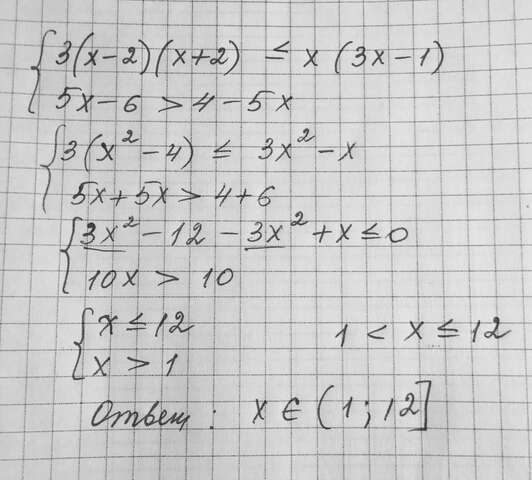 3(x-2)(x+2) ≤ x(3x-1)
5x-6 > 4-5x
3(x²-4) ≤ 3x²-x
5x+5x > 4+6
3x²-12-3x²+x ≤ 0
10x > 10
x ≤ 12
x > 1
1 < x ≤ 12
Ответ: x ∈ (1; 12]